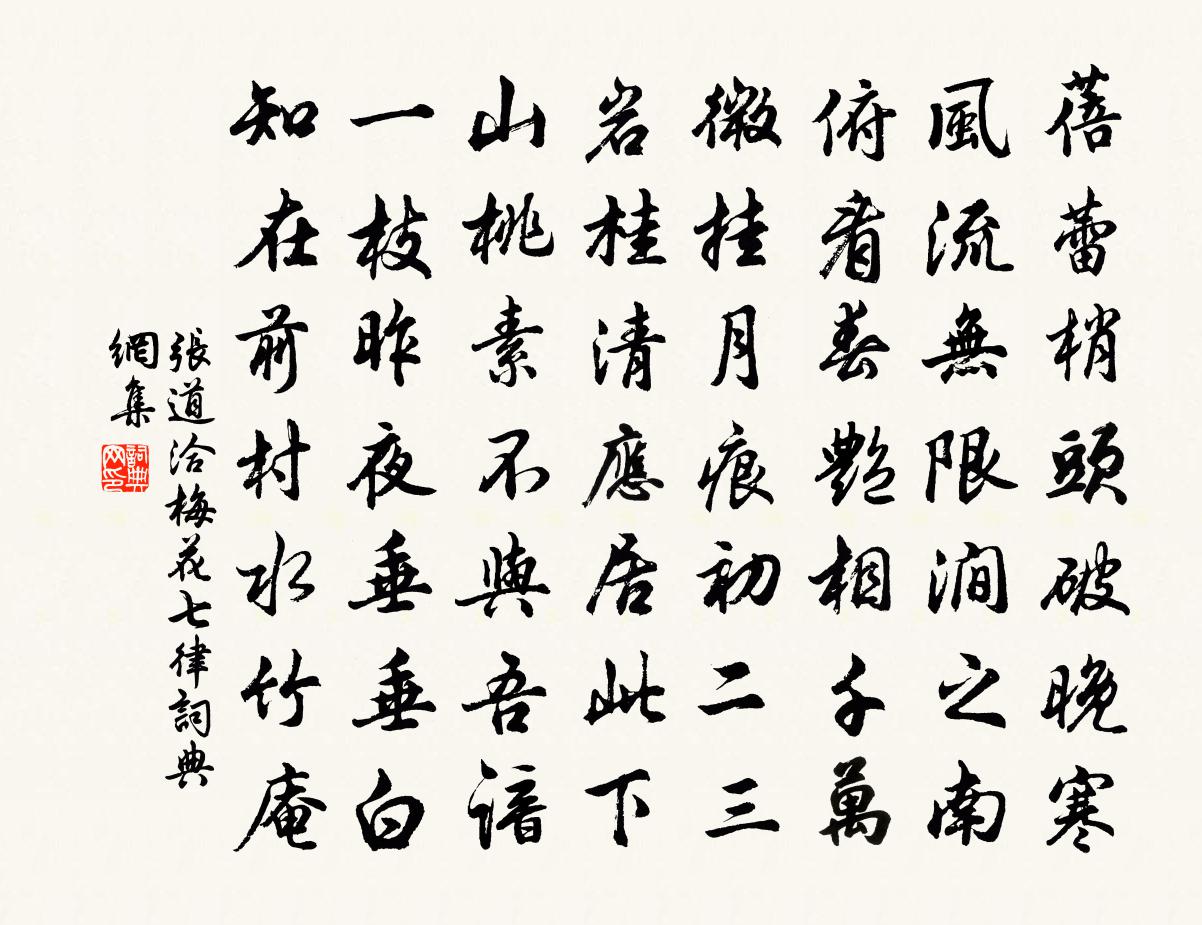 蓓蕾梢頭破晚寒
風流無限澗之南
俯看春艷相千萬
微挂月痕初二三
岩桂清應居此下
山桃素不與吾諳
一枝昨夜垂垂白
知在前村水竹庵
張道洽梅花七律詞典
網集
詞典网印